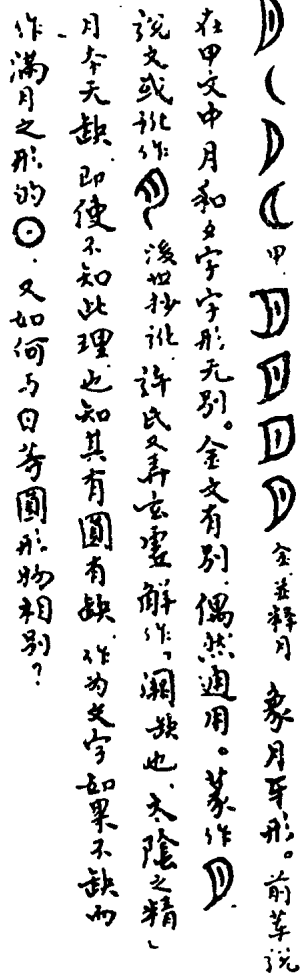 甲. 金.並釋月 象月牙形。前輩說
在甲文中月和夕字字形无別。金文有別.偶然通用。篆作
說文或訛作 後世抄訛.許氏又弄玄虛解作「闕缺也.太陰之精」
月本无缺.即使不知此理.也知其有圓有缺.作为文字如果不缺而
作滿月之形的⊙.又如何与日等圓形物相別?